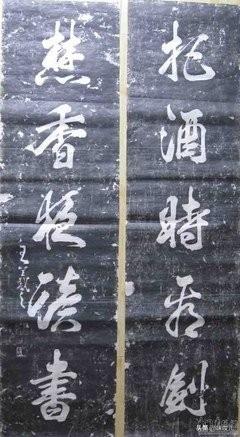 把酒時看劍
焚香夜讀書
王羲之